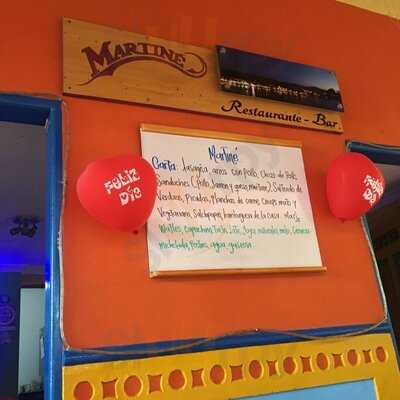 MARTINE
Restaurante - Bar
Martiné
Carta: lasagña, arroz con pollo, Chuzo de Pollo,
Sanduches (Pollo, Jamon y queso, martine), Salteado de
Verduras, Picadas, Planchas de carne, Creeps mixto y
Vegetariano, Salchipapas, hamburguesa de la casa.
Waffles, capuchino, tinto, Late, Jugos naturales, malte, Cerveza
michelada, Postres, agua, gaseosa.
FELIZ
DÍA
FELIZ